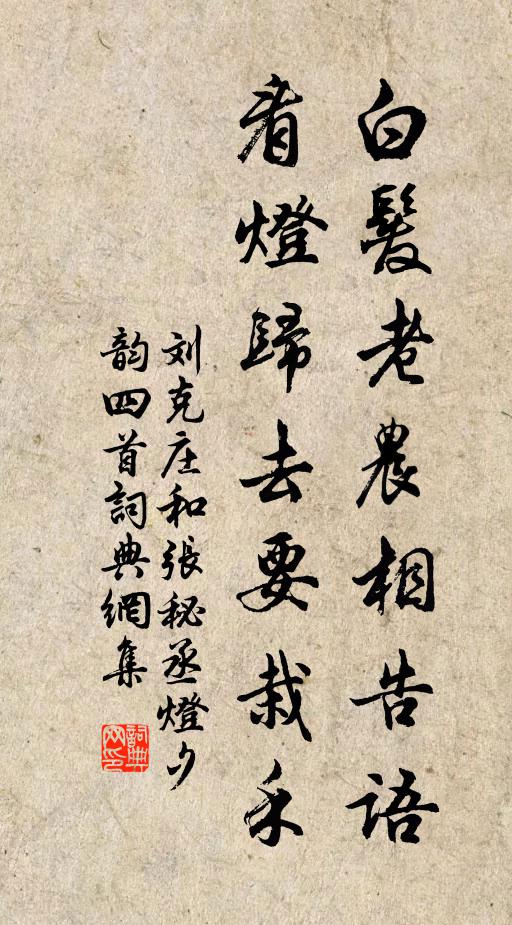 白髮老農相告語
看燈歸去要栽禾
刘克庄和張秘丞燈夕
韵四首詞典網集
詞典网印